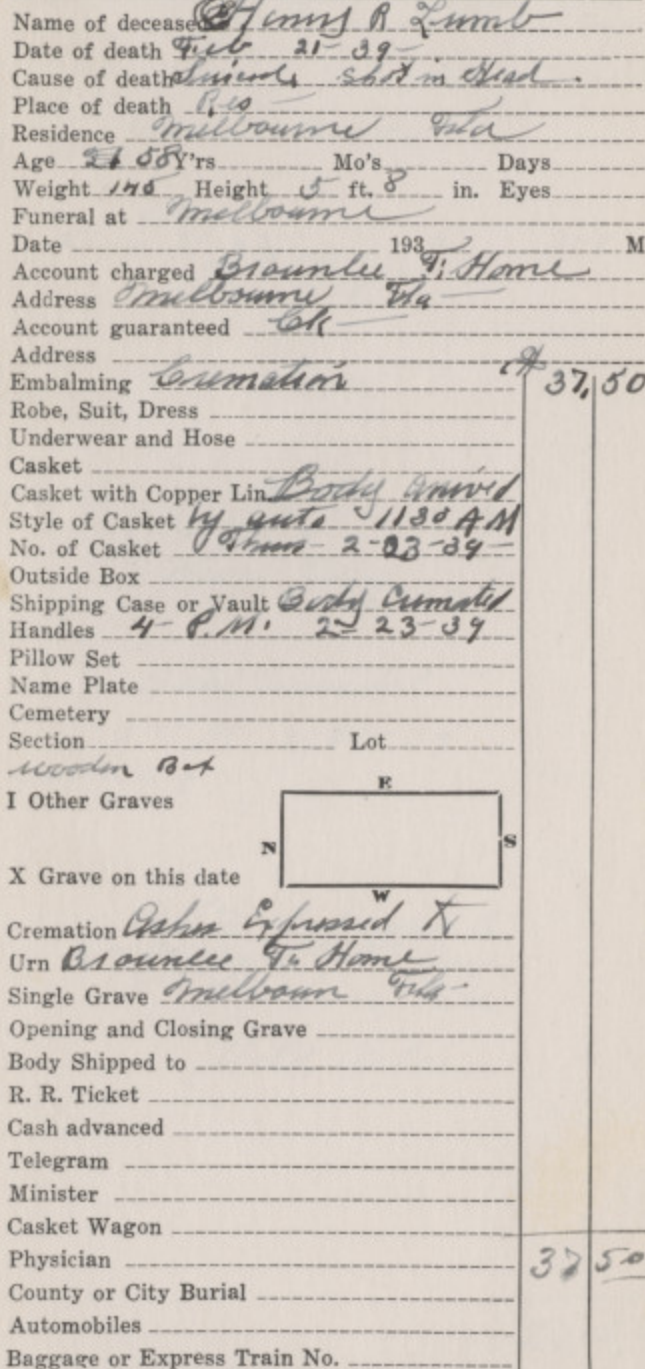 Name of deceased Henry R Lumb
Date of death Feb 21 - 39 -
Cause of death Suicide Shot in Head.
Place of death Res -
Residence Melbourne Fla
Age 58 Y'rs Mo's Days
Weight 145 Height 5 ft. 8 in. Eyes
Funeral at Melbourne
Date 193 M
Account charged Brownlee F. Home
Address Melbourne Fla -
Account guaranteed Ck -
Address
Embalming Cremation 37.50
Robe, Suit, Dress
Underwear and Hose
Casket
Casket with Copper Lin Body arrived
Style of Casket by auto 1130 AM
No. of Casket Thurs - 2-23-39 -
Outside Box
Shipping Case or Vault Body Cremated
Handles 4 - P.M. 2-23-39
Pillow Set
Name Plate
Cemetery
Section Lot
wooden Box
E
I Other Graves
N S
X Grave on this date
W
Cremation Ashes Expressed to
Urn Brownlee Fu Home
Single Grave Melbourn Fla -
Opening and Closing Grave
Body Shipped to
R. R. Ticket
Cash advanced
Telegram
Minister
Casket Wagon
Physician 37 50
County or City Burial
Automobiles
Baggage or Express Train No.